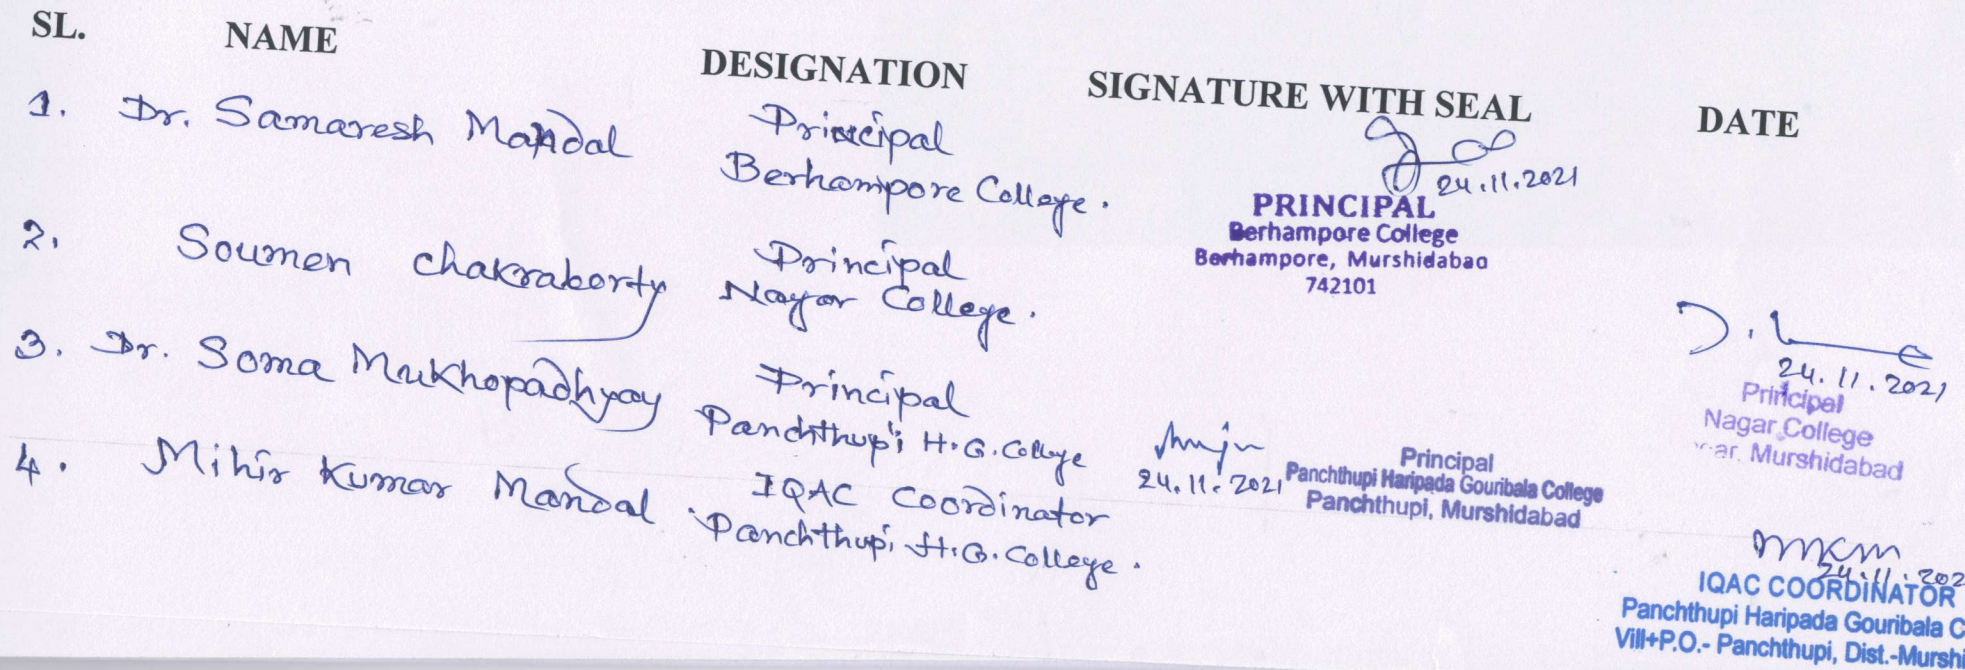 SL. NAME DESIGNATION SIGNATURE WITH SEAL DATE
1. Dr. Samaresh Mandal Principal
Berhampore College.
24.11.2021
PRINCIPAL
Berhampore College
Berhampore, Murshidabad
742101
2. Soumen Chakraborty Principal
Nagar College.
24.11.2021
Principal
Nagar College
ar. Murshidabad
3. Dr. Soma Mukhopadhyay Principal
Panchthupi H.G. College
24.11.2021
Principal
Panchthupi Haripada Gouribala College
Panchthupi, Murshidabad
4. Mihir Kumar Mandal. IQAC Coordinator
Panchthupi H.G. College.
MKM
24.11.202
IQAC COORDINATOR
Panchthupi Haripada Gouribala C
Vill+P.O.- Panchthupi, Dist.-Murshi